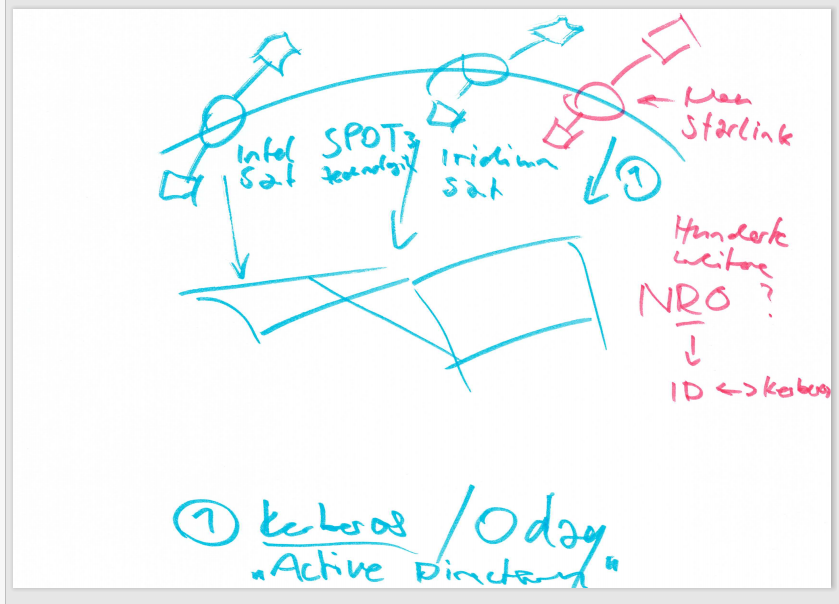 Intel SPOT3 Iridium
Sat Sat
Neu
Starlink
①
Hunderte
weitere
NRO ?
ID <-> Kerberos
① Kerberos / 0day
"Active Directory"